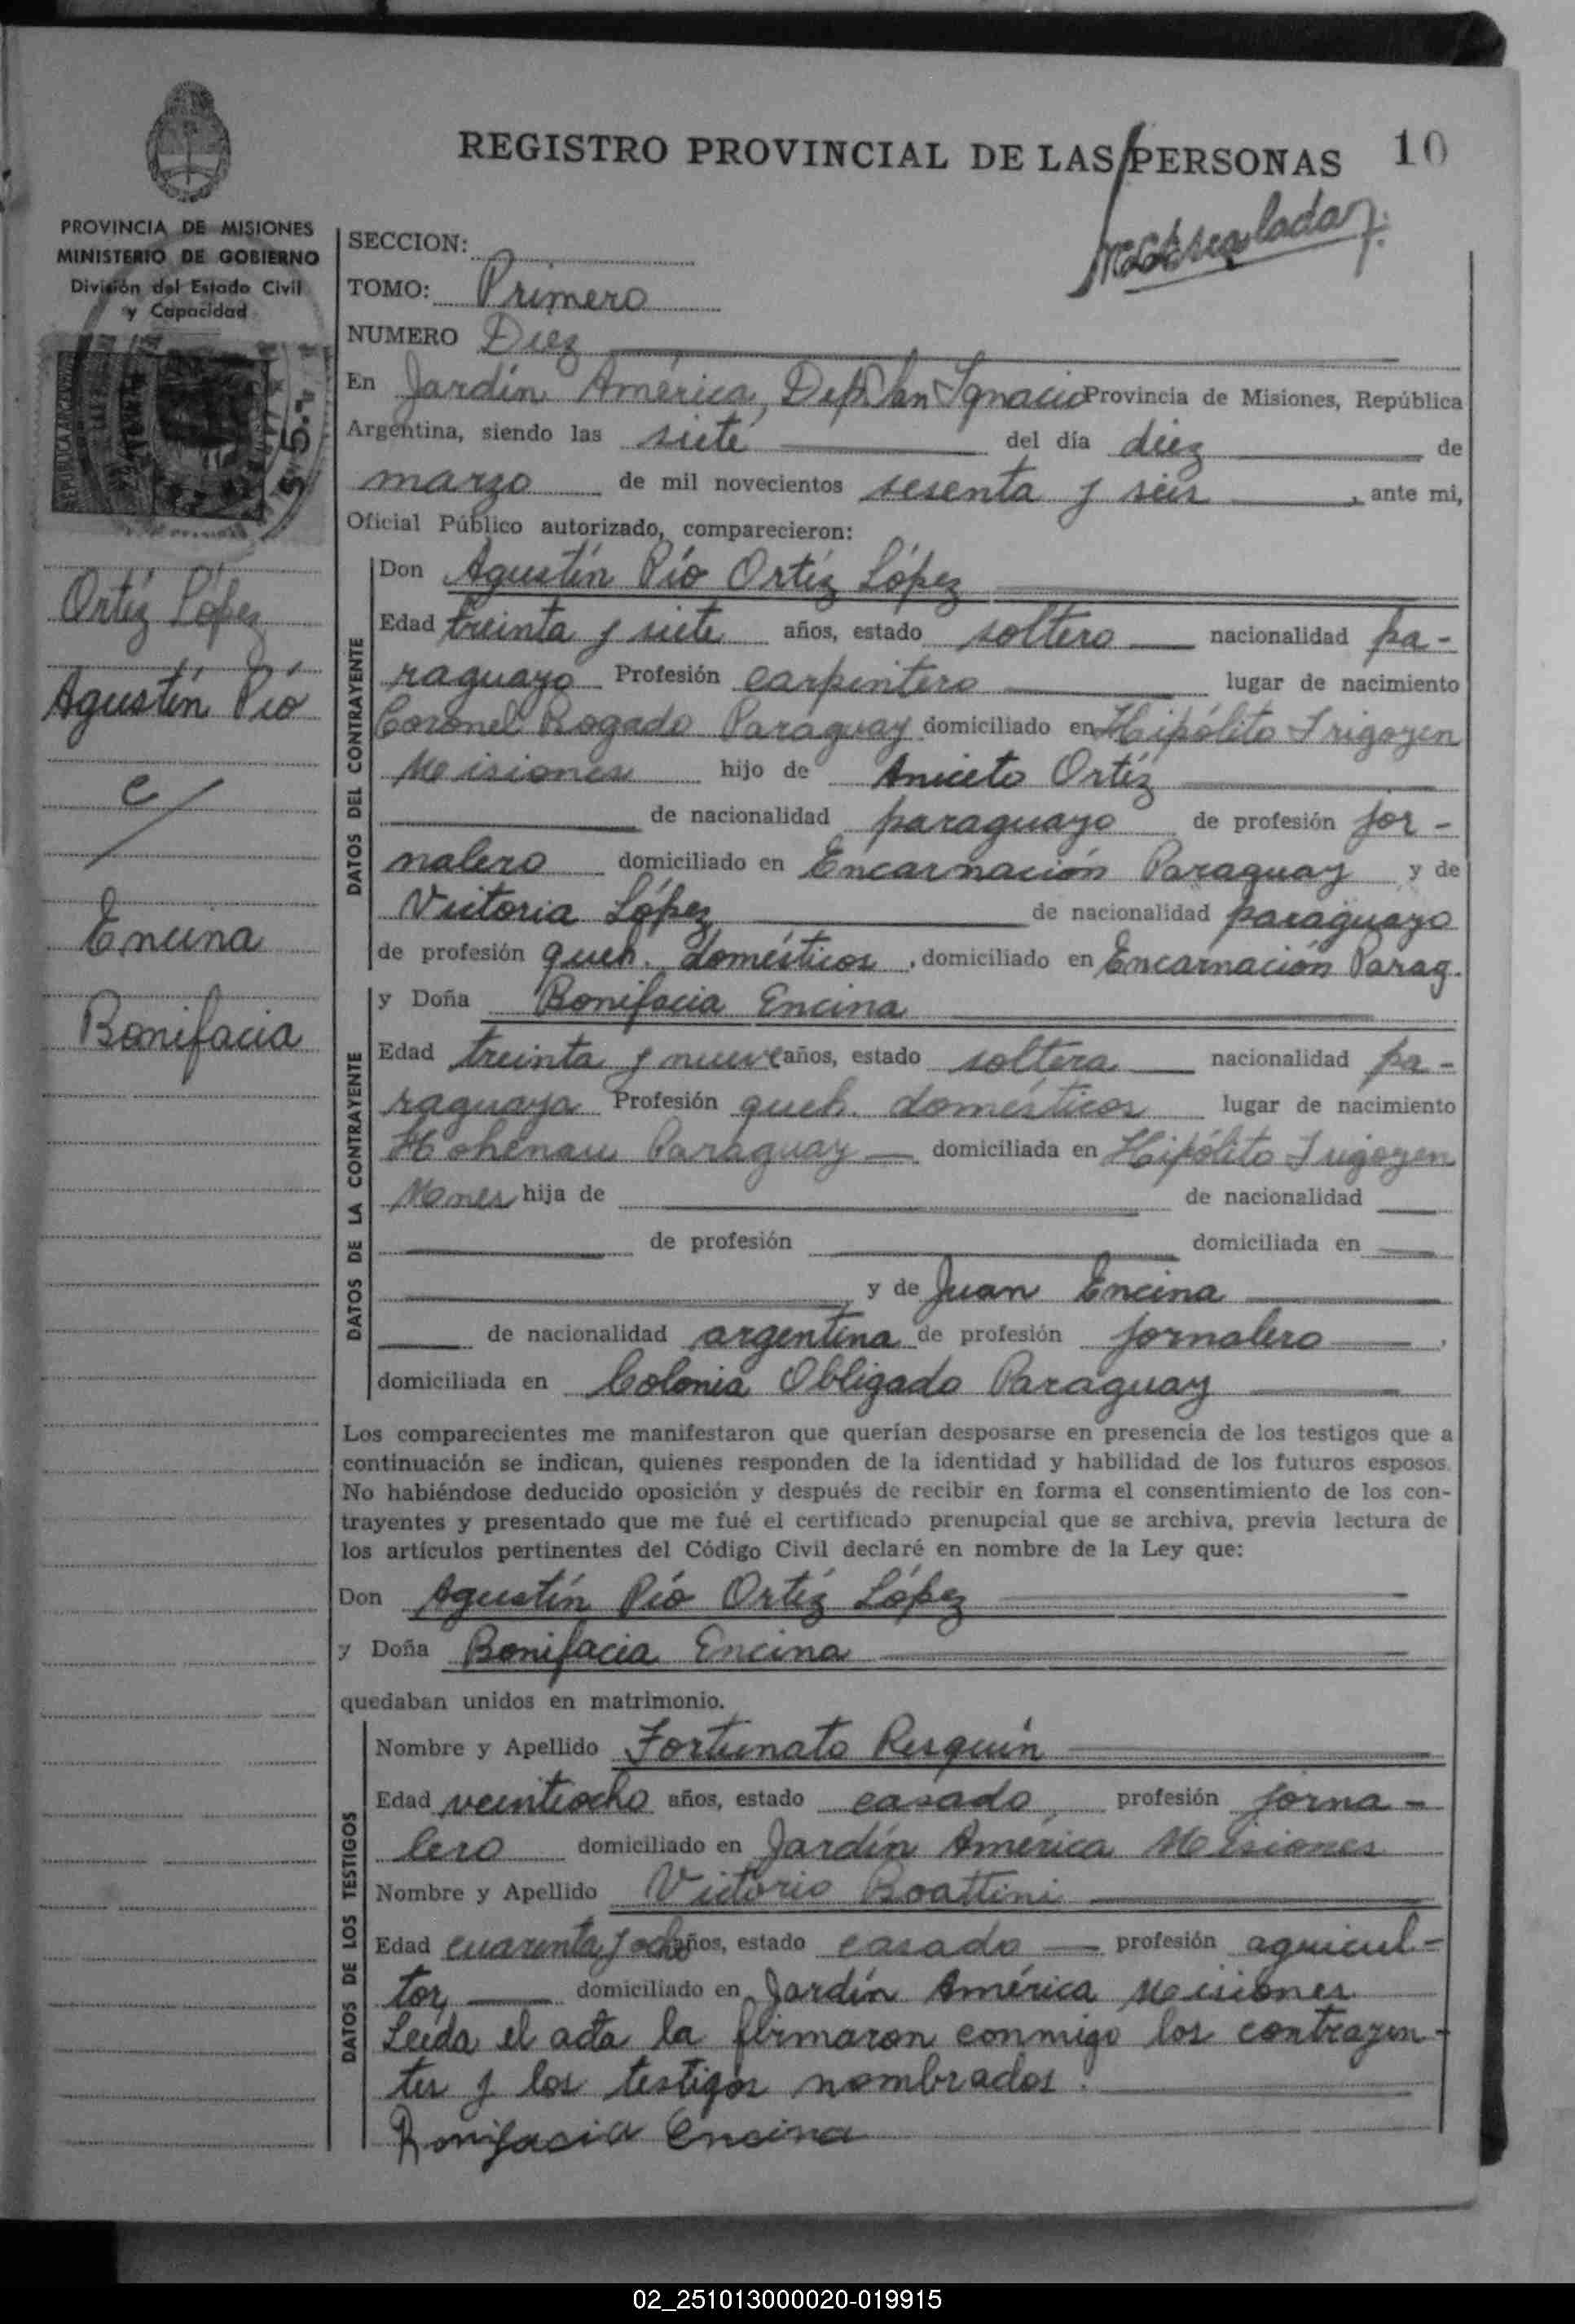 REGISTRO PROVINCIAL DE LAS PERSONAS 10
PROVINCIA DE MISIONES
MINISTERIO DE GOBIERNO
División del Estado Civil
y Capacidad
REPUBLICA ARGENTINA
Ortíz López
Agustín Pío
c/
Encina
Bonifacia
SECCION:
TOMO: Primero
NUMERO Diez
En Jardín América, Dep. San Ignacio Provincia de Misiones, República
Argentina, siendo las siete del día diez de
marzo de mil novecientos sesenta y seis, ante mi,
Oficial Público autorizado, comparecieron:
DATOS DEL CONTRAYENTE
Don Agustín Pío Ortíz López
Edad treinta y siete años, estado soltero nacionalidad pa-
raguayo Profesión carpintero lugar de nacimiento
Coronel Bogado Paraguay domiciliado en Hipólito Irigoyen
Misiones hijo de Aniceto Ortíz
de nacionalidad paraguayo de profesión jor-
nalero domiciliado en Encarnación Paraguay y de
Victoria López de nacionalidad paraguayo
de profesión queh. domésticos, domiciliado en Encarnación Parag.
DATOS DE LA CONTRAYENTE
y Doña Bonifacia Encina
Edad treinta y nueve años, estado soltera nacionalidad pa-
raguaya Profesión queh. domésticos lugar de nacimiento
Hohenau Paraguay domiciliada en Hipólito Irigoyen
Mones hija de de nacionalidad
de profesión domiciliada en
y de Juan Encina
de nacionalidad argentina de profesión jornalero,
domiciliada en Colonia Obligado Paraguay
Los comparecientes me manifestaron que querían desposarse en presencia de los testigos que a
continuación se indican, quienes responden de la identidad y habilidad de los futuros esposos.
No habiéndose deducido oposición y después de recibir en forma el consentimiento de los con-
trayentes y presentado que me fué el certificado prenupcial que se archiva, previa lectura de
los artículos pertinentes del Código Civil declaré en nombre de la Ley que:
Don Agustín Pío Ortíz López
y Doña Bonifacia Encina
quedaban unidos en matrimonio.
DATOS DE LOS TESTIGOS
Nombre y Apellido Fortunato Resquín
Edad veintiocho años, estado casado, profesión jorna-
lero domiciliado en Jardín América Misiones
Nombre y Apellido Victorio Boattini
Edad cuarenta y ocho años, estado casado profesión agricul-
tor domiciliado en Jardín América Misiones
Leída el acta la firmaron conmigo los contrayen-
tes y los testigos nombrados.
Bonifacia Encina
02_251013000020-019915